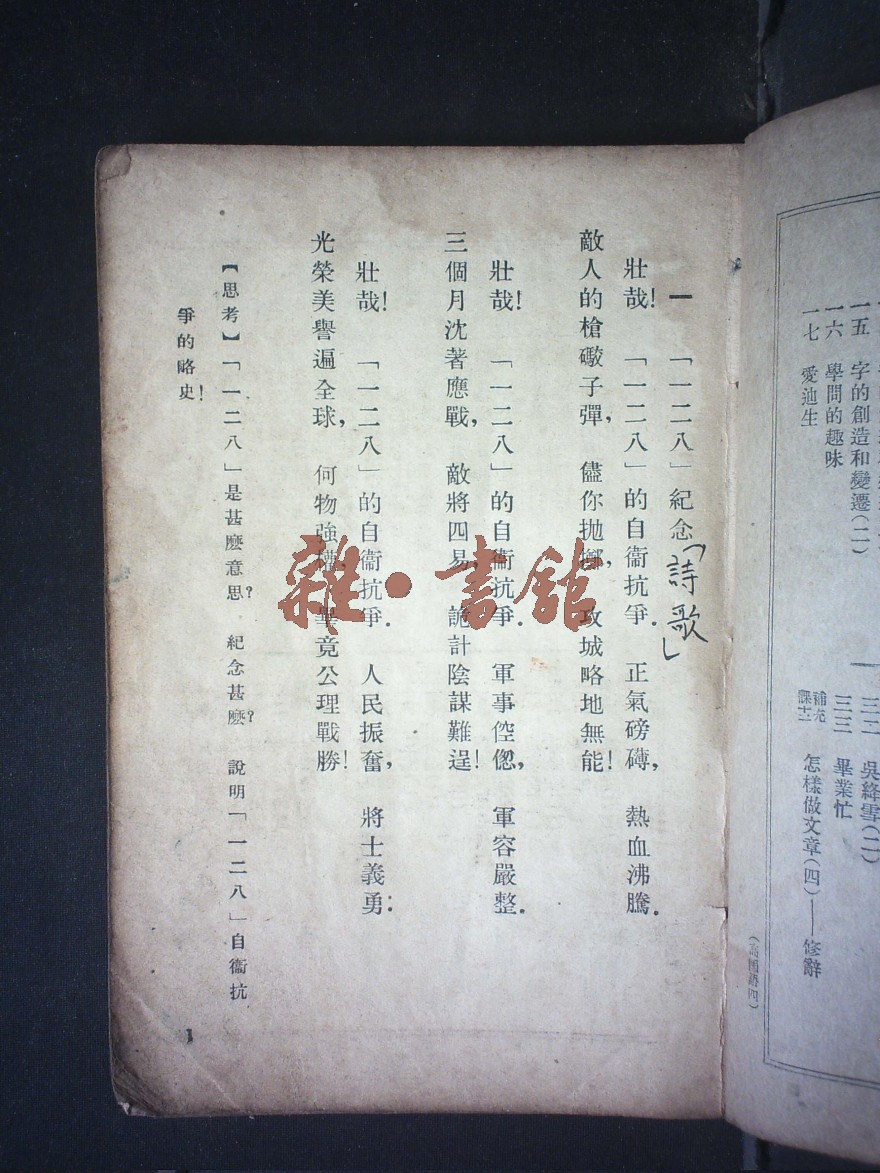 一 「一二八」紀念「詩歌」
壯哉!「一二八」的自衞抗爭.正氣磅礴,熱血沸騰.
敵人的槍礮子彈,儘你抛擲,攻城略地無能!
壯哉!「一二八」的自衞抗爭.軍事倥偬,軍容嚴整.
三個月沈著應戰,敵將四易,詭計陰謀難逞!
壯哉!「一二八」的自衞抗爭.人民振奮,將士義勇:
光榮美譽遍全球,何物強權,畢竟公理戰勝!
【思考】「一二八」是甚麽意思?紀念甚麽?說明「一二八」自衞抗
爭的略史!
1
雜·書館
一五 字的創造和變遷(二)
一六 學問的趣味
一七 愛迪生
三二 吳絳雪(二)
三三 畢業忙
補充課十二 怎樣做文章(四)——修辭
(高國語四)